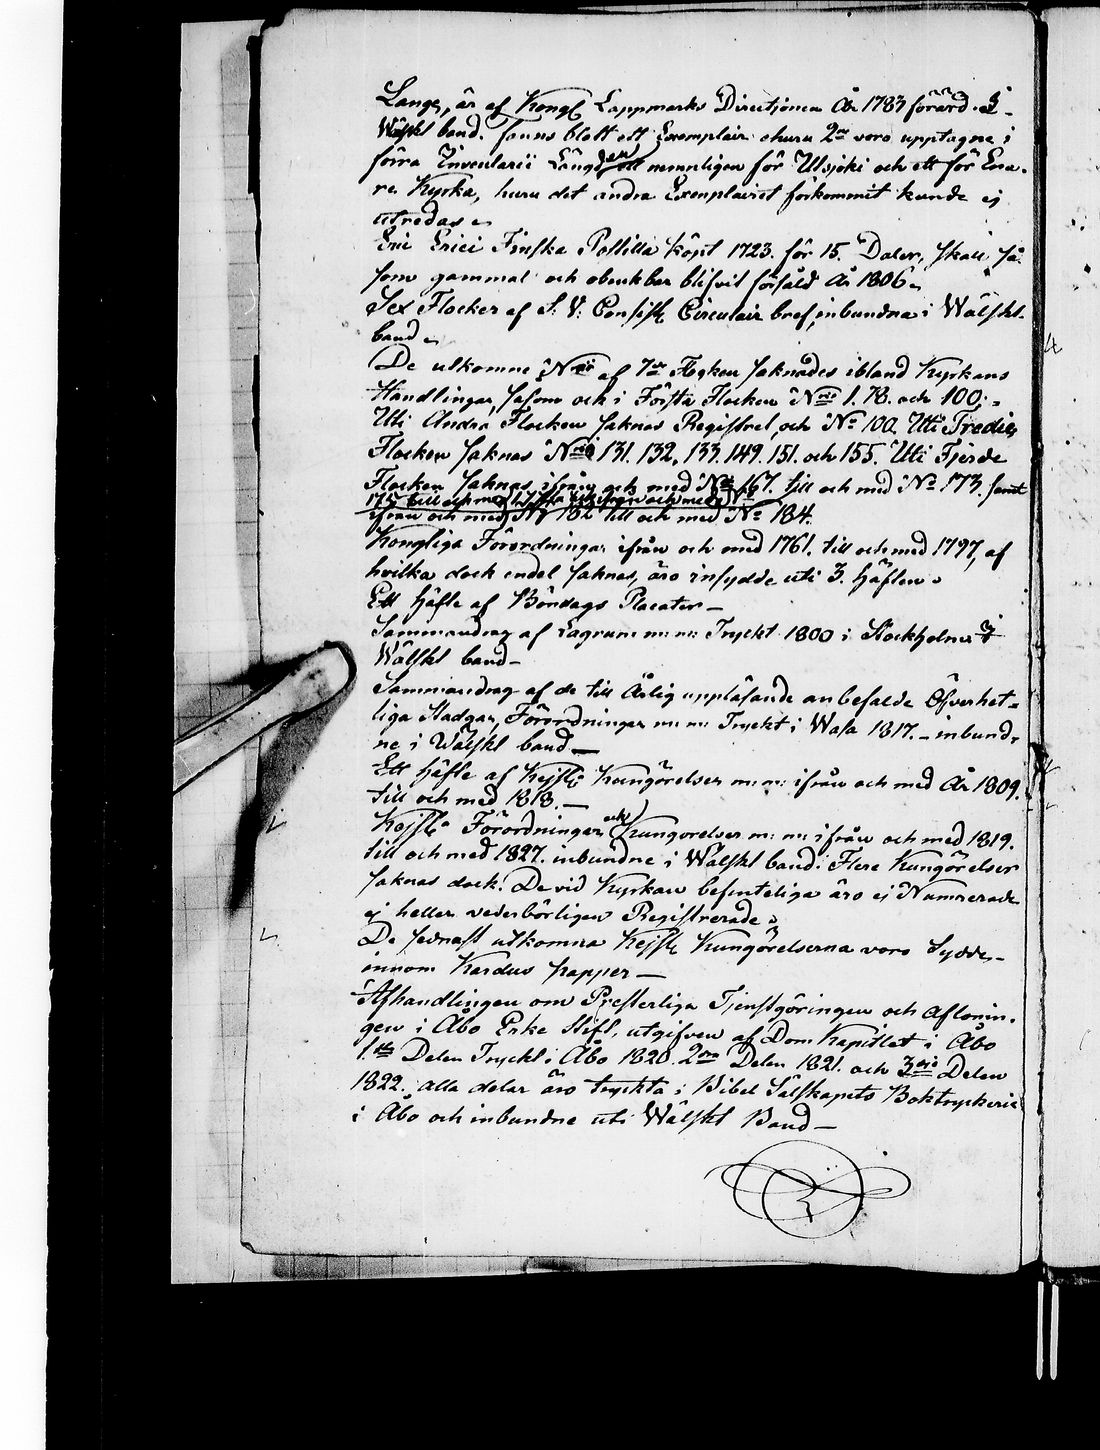 Lange, är af Kongl Lappmarks Directionen År 1783 förärd. I
Wälskt band. fanns blott ett Exemplair ehuru 2ne voro upptagne i
förra Inventarii Längd en nemnligen för Utsjoki och ett för Ena-
re Kyrka, huru det andra Exemplairet förkommit kunde ej
utredas
Eric Erici Finska Postilla köpt 1723. för 15. Daler, skall så-
som gammal och obrukbar blifvit försåld År 1806
Sex Flocker af S: V: Consist: Circulair bref, inbundna i Wälskt
band
De utkomne Nrii af 7de Flocken saknades ibland Kyrkans
Handlingar, såsom ock i Första Flocken Nris 1. 78. och 100.
Uti Andra Flocken saknas Registret, och No 100. Uti Tredie
Flocken saknas Nris 131. 132. 133. 149. 151. och 155. Uti Fjerde
Flocken saknas ifrån och med No 167. till och med No 173. samt
175 till och med 177 ifrån och med No
ifrån och med No 182 till och med No 184.
Kongliga Förordningar ifrån och med 1761. till och med 1797, af
hvilka dock endel saknas, äro insydde uti 3. häften
Ett häfte af Böndags Placater
Sammandrag af Lagrum m: m: Tryckt 1800 i Stockholm i
Wälskt band
Sammandrag af de till Årlig uppläsande anbefalde Öfverhet-
liga Stadgar, Förordningar m: m: Tryckt i Wasa 1817. inbund-
ne i Wälskt band
Ett häfte af Kejsl: Kungörelser m: m: ifrån och med År 1809.
till och med 1818.
Kejsl: Förordningar och Kungörelser m: m: ifrån och med 1819.
till och med 1827. inbundne i Wälskt band. Flere Kungörelser
saknas dock. De vid Kyrkan befinteliga äro ej Numrerade
ej heller vederbörligen Registrerade
De sednast utkomna Kejsl: Kungörelserna voro Sydde
innom Kardus papper
Afhandlingen om Presterliga Tjenstgöringen och aflönin-
gen i Åbo Erke Stift, utgifven af Dom Kapitlet i Åbo
1sta Delen Tryckt i Åbo 1820. 2dra Delen 1821. och 3die Delen
1822. alla delar äro tryckta i Bibel Sälskapets Boktryckerie
i Åbo och inbundne uti Wälskt Band